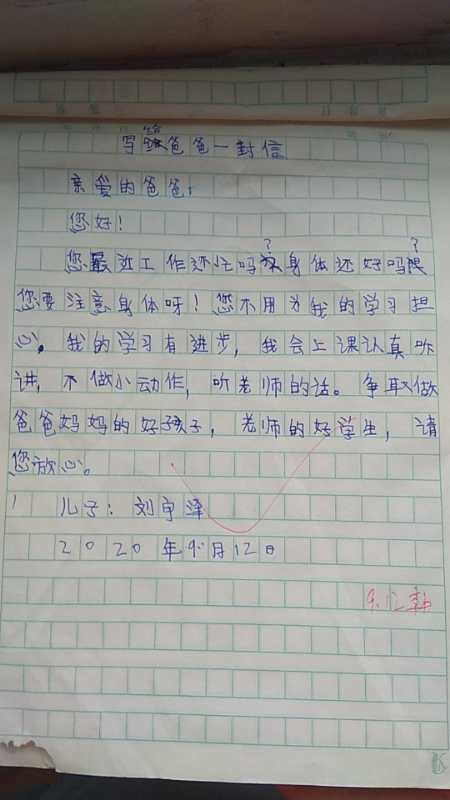 写给爸爸一封信
亲爱的爸爸:
您好!
您最近工作还忙吗?身体还好吗?
您要注意身体呀!您不用为我的学习担
心。我的学习有进步,我会上课认真听
讲,不做小动作,听老师的话。争取做
爸爸妈妈的好孩子,老师的好学生,请
您放心。
儿子:刘宇泽
2020年9月12日
9.12